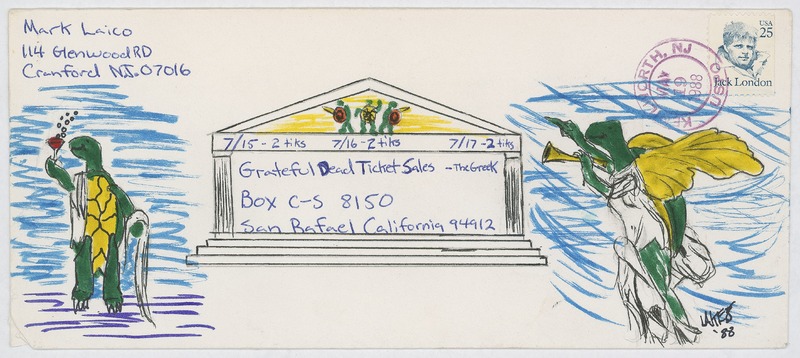 Mark Laico
114 Glenwood RD
Cranford NJ. 07016
USA
25
Jack London
KENILWORTH, NJ
USPO
MAY
1988
7/15-2 tiks 7/16-2 tiks 7/17-2 tiks
Grateful Dead Ticket Sales - The Greek
Box C-S 8150
San Rafael California 94912
'88